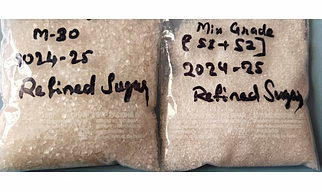 M-30
2024-25
Refined Sugar
Mix Grade
[S1+S2]
2024-25
Refined Sugar